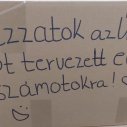 zzatok az
ót tervezett e
számotokra!